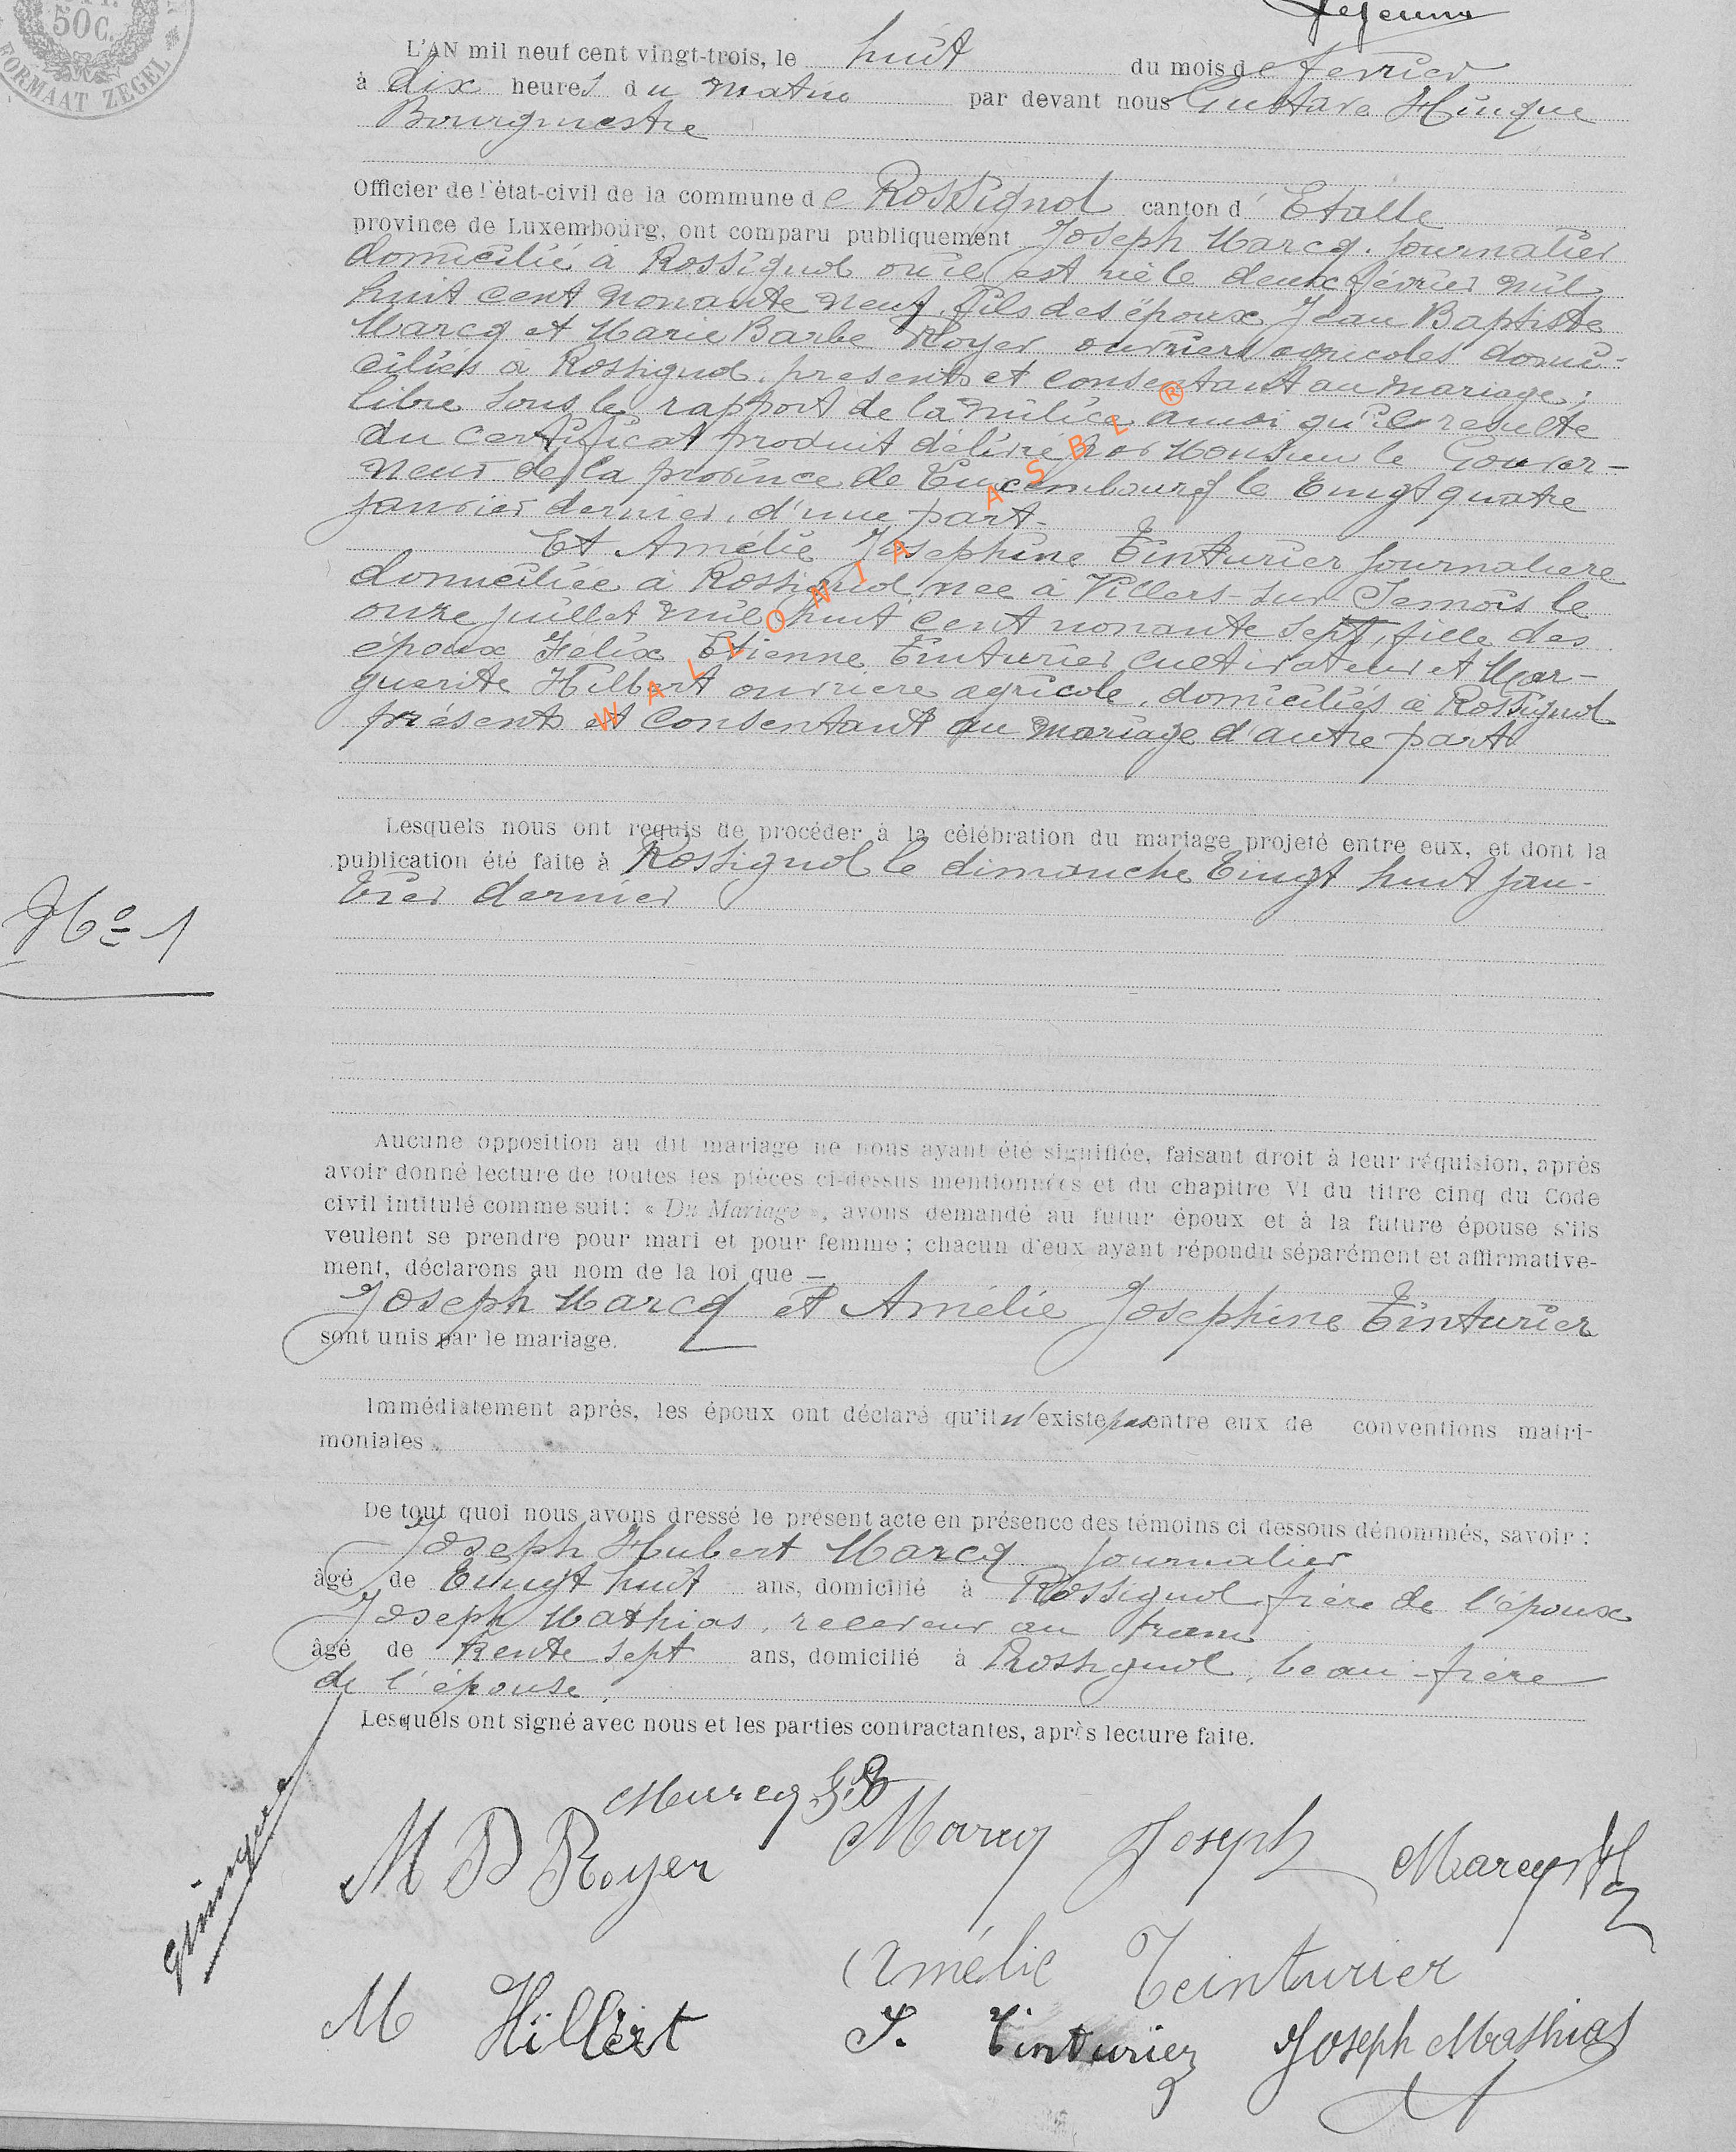 50C.
FORMAAT ZEGEL
Lejeune
L'AN mil neuf cent vingt-trois, le huit du mois de fevrier
à dix heures du matin par devant nous Gustave Hinque
Bourgmestre
Officier de l'état-civil de la commune de Rossignol canton d' Etalle
province de Luxembourg, ont comparu publiquement Joseph Marcq. journalier
domicilié à Rossignol où il est né le deux février mil
huit cent nonante neuf, fils des époux Jean Baptiste
Marcq et Marie Barbe Royer ouvriers agricoles domi-
ciliés à Rossignol. presents et consentant au mariage;
libre sous le rapport de la milice ainsi qu'il resulte
du certificat produit délivré par Monsieur le Gouver-
neur de la province de Luxembourg le Vingt quatre
janvier dernier, d'une part-
Et Amélie Josephine Tinturier journaliere
domiciliée à Rossignol, née à Villers-sur-Semois le
onze juillet mil huit cent nonante sept, fille des
époux Félix Etienne Tinturier cultivateur et Mar-
guerite Hilbert ouvriere agricole, domiciliés à Rossignol
présents et consentant au mariage d'autre part
WALLONIA ASBL ®
Lesquels nous ont requis de procéder à la célébration du mariage projeté entre eux, et dont la
publication été faite à Rossignol le dimanche Vingt huit jan-
vier dernier
No 1
Aucune opposition au dit mariage ne nous ayant été signifiée, faisant droit à leur réquision, après
avoir donné lecture de toutes les pièces ci-dessus mentionnées et du chapitre VI du titre cinq du Code
civil intitulé comme suit: « Du Mariage », avons demandé au futur époux et à la future épouse s'ils
veulent se prendre pour mari et pour femme; chacun d'eux ayant répondu séparément et affirmative-
ment, déclarons au nom de la loi que —
Joseph Marcq et Amélie Josephine Tinturier
sont unis par le mariage.
Immédiatement après, les époux ont déclaré qu'il n'existe pas entre eux de conventions matri-
moniales.
De tout quoi nous avons dressé le présent acte en présence des témoins ci dessous dénommés, savoir :
Joseph Hubert Marcq journalier
âgé de Vingt huit ans, domicilié à Rossignol frère de l'époux
Joseph Mathias, receveur au tram
âgé de trente sept ans, domicilié à Rossignol, beau-frère
de l'épouse.
Lesquels ont signé avec nous et les parties contractantes, après lecture faite.
Marcq J.B
M B Royer Marcq Joseph Marcq H
Hinque
Amélie Teinturier
M Hilbert F. Tinturier Joseph Mathias